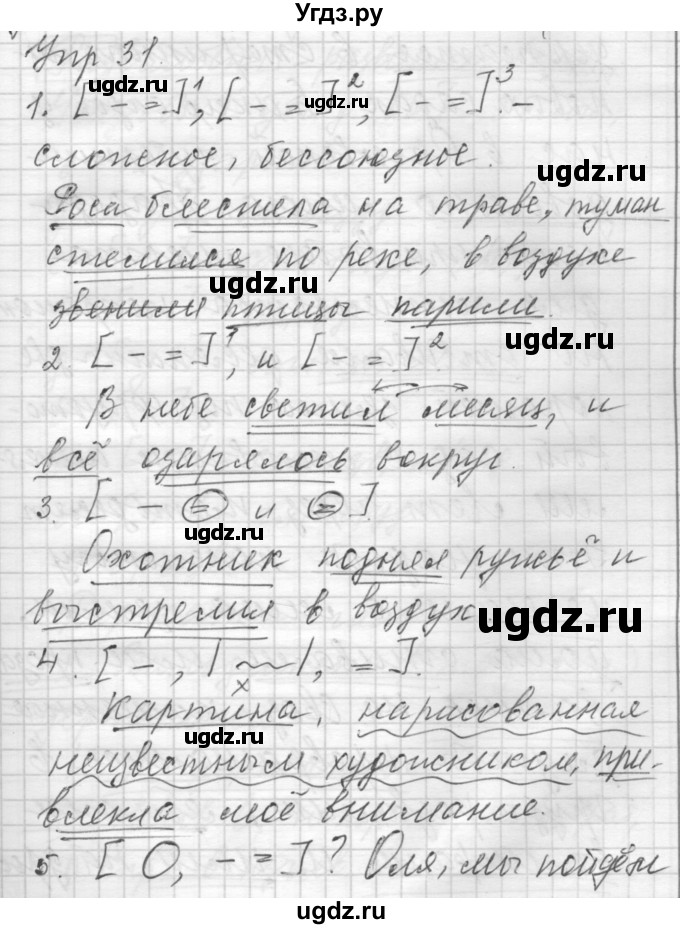 Угдз.ру
Упр 31.
1. [ - = ]¹, [ - = ]², [ - = ]³. -
сложное, бессоюзное.
Роса блестела на траве, туман
стелился по реке, в воздухе
звенили птицы парили.
2. [ - = ]¹, и [ - = ]².
В небе светил месяц, и
всё озарялось вокруг.
3. [ - = и = ]
Охотник поднял ружьё и
выстрелил в воздух
4. [ - , | ~ |, = ].
х
Картина, нарисованная
неизвестным художником, при-
влекла моё внимание.
5. [ О, - = ]? Оля, мы пойдём
ugdz.ru
ugdz.ru
ugdz.ru
ugdz.ru
ugdz.ru
ugdz.ru
ugdz.ru
ugdz.ru
ugdz.ru
ugdz.ru
ugdz.ru
ugdz.ru